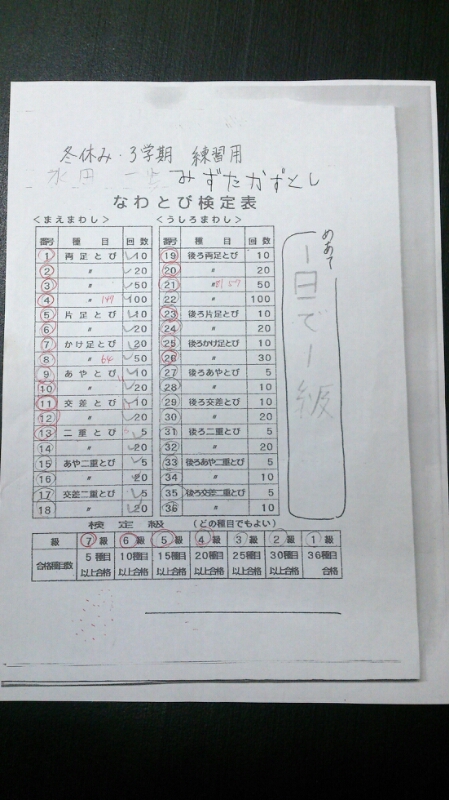 冬休み・3学期 練習用
みずたかずとし
なわとび検定表
<まえまわし>
番号 種目 回数
1 両足とび 10
2 〃 20
3 〃 50
4 〃 149 100
5 片足とび 10
6 〃 20
7 かけ足とび 20
8 〃 64 50
9 あやとび 10
10 〃 20
11 交差とび 10
12 〃 20
13 二重とび 5
14 〃 20
15 あや二重とび 5
16 〃 20
17 交差二重とび 5
18 〃 20
<うしろまわし>
番号 種目 回数
19 後ろ両足とび 10
20 〃 20
21 〃 50
22 〃 100
23 後ろ片足とび 10
24 〃 20
25 後ろかけ足とび 10
26 〃 30
27 後ろあやとび 5
28 〃 10
29 後ろ交差とび 10
30 〃 20
31 後ろ二重とび 5
32 〃 20
33 後ろあや二重とび 5
34 〃 10
35 後ろ交差二重とび 5
36 〃 10
めあて
一日で一級
検定級 (どの種目でもよい)
級 7級 6級 5級 4級 3級 2級 1級
合格種目数 5種目 10種目 15種目 20種目 25種目 30種目 36種目
以上合格 以上合格 以上合格 以上合格 以上合格 以上合格 合格